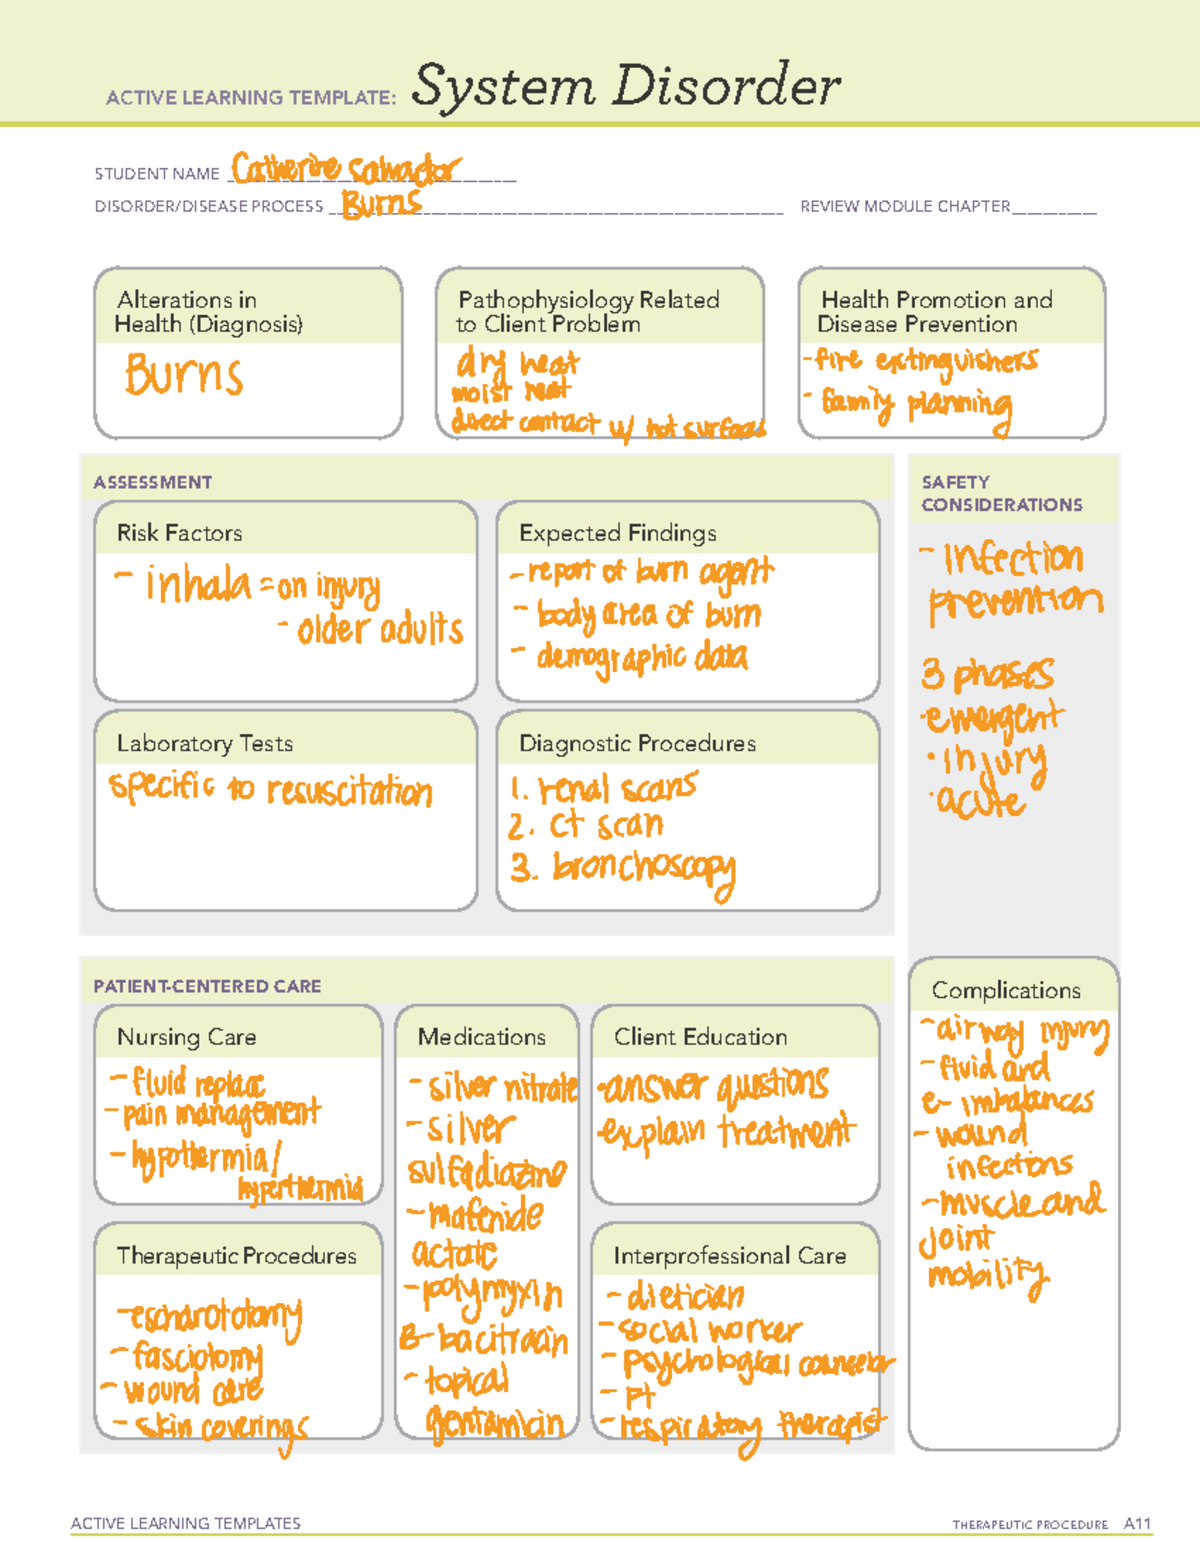 ACTIVE LEARNING TEMPLATE: System Disorder
STUDENT NAME Catherine Salvador
DISORDER/DISEASE PROCESS Burns REVIEW MODULE CHAPTER
Alterations in
Health (Diagnosis)
Burns
Pathophysiology Related
to Client Problem
dry heat
moist heat
direct contact w/ hot surfaces
Health Promotion and
Disease Prevention
- fire extinguishers
- family planning
ASSESSMENT
Risk Factors
- inhala = on injury
- older adults
Expected Findings
- report of burn agent
- body area of burn
- demographic data
Laboratory Tests
specific to resuscitation
Diagnostic Procedures
1. renal scans
2. ct scan
3. bronchoscopy
SAFETY
CONSIDERATIONS
- infection
prevention
3 phases
·emergent
·injury
·acute
PATIENT-CENTERED CARE
Nursing Care
- fluid replace
- pain management
- hypothermia/
hyperthermia
Medications
- silver nitrate
- silver
sulfadiazine
- mafenide
actate
- polymyxin
B- bacitracin
- topical
gentamicin
Client Education
·answer questions
·explain treatment
Therapeutic Procedures
-escharototomy
- fasciotomy
- wound care
- skin coverings
Interprofessional Care
- dietician
- social worker
- psychological counselor
- pt
- respiratory therapist
Complications
- airway injury
- fluid and
e- imbalances
- wound
infections
- muscle and
joint
mobility
ACTIVE LEARNING TEMPLATES
THERAPEUTIC PROCEDURE A11